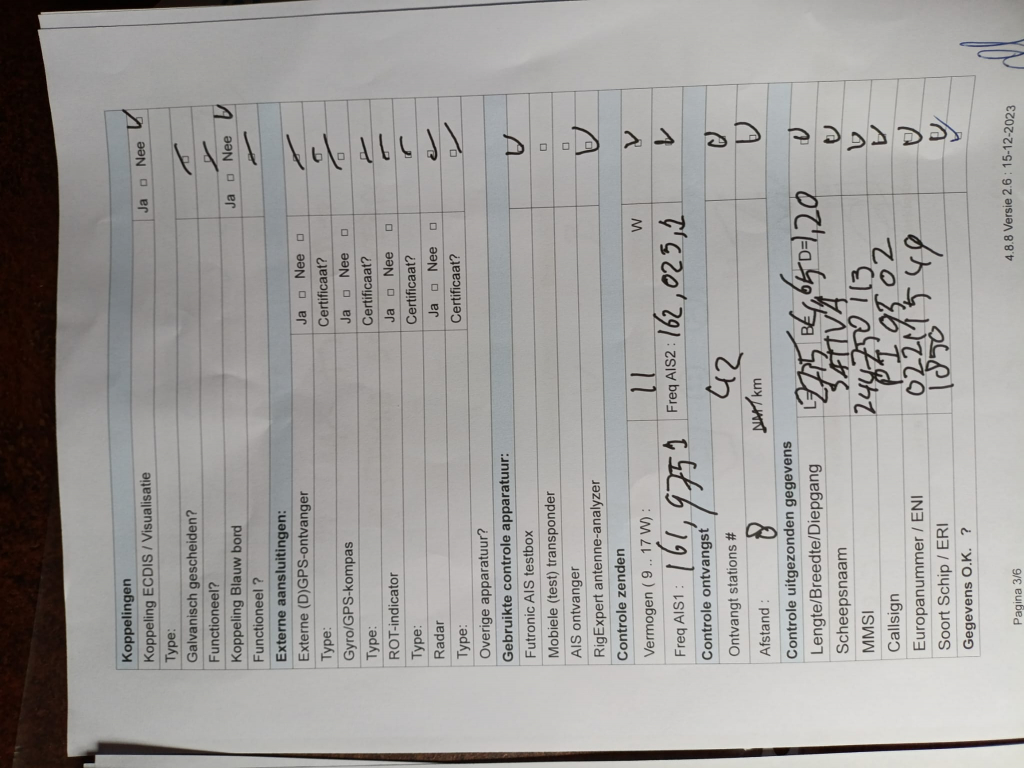 Koppelingen
Koppeling ECDIS / Visualisatie Ja □ Nee
Type:
Galvanisch gescheiden?
Functioneel?
Koppeling Blauw bord Ja □ Nee
Functioneel ?
Externe aansluitingen:
Externe (D)GPS-ontvanger Ja □ Nee □
Type: Certificaat?
Gyro/GPS-kompas Ja □ Nee □
Type: Certificaat?
ROT-indicator Ja □ Nee □
Type: Certificaat?
Radar Ja □ Nee □
Type: Certificaat?
Overige apparatuur?
Gebruikte controle apparatuur:
Futronic AIS testbox
Mobiele (test) transponder □
AIS ontvanger □
RigExpert antenne-analyzer
Controle zenden
Vermogen ( 9 .. 17 W) : 11 W
Freq AIS1 : 161,9751 Freq AIS2 : 162,025,1
Controle ontvangst
Ontvangt stations # 42
Afstand : 8 km
Controle uitgezonden gegevens
Lengte/Breedte/Diepgang L= B= D=1,20
Scheepsnaam SATIVA
MMSI 244750113
Callsign 9502
Europanummer / ENI
Soort Schip / ERI
Gegevens O.K. ?
Pagina 3/6
4.8.8 Versie 2.6 : 15-12-2023